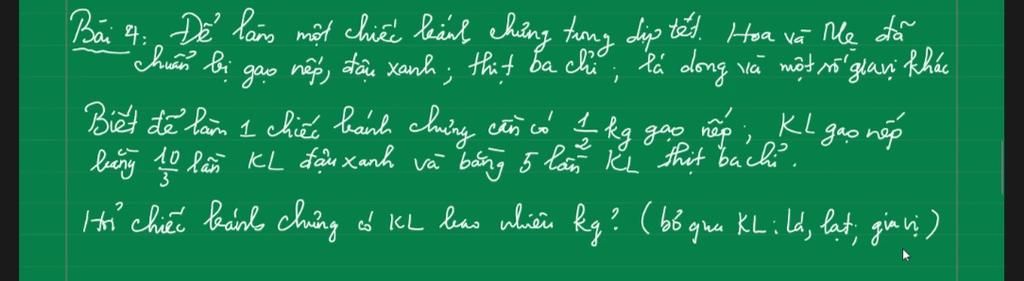 Bài 4: Để làm một chiếc bánh chưng trong dịp tết. Hoa và Mẹ đã
chuẩn bị gạo nếp, đậu xanh; thịt ba chỉ, lá dong và một số gia vị khác
Biết để làm 1 chiếc bánh chưng cần có 1/2 kg gạo nếp; KL gạo nếp
bằng 10/3 lần KL đậu xanh và bằng 5 lần KL thịt ba chỉ.
Hỏi chiếc bánh chưng có KL bao nhiêu kg? (bỏ qua KL: Lá, lạt, gia vị)